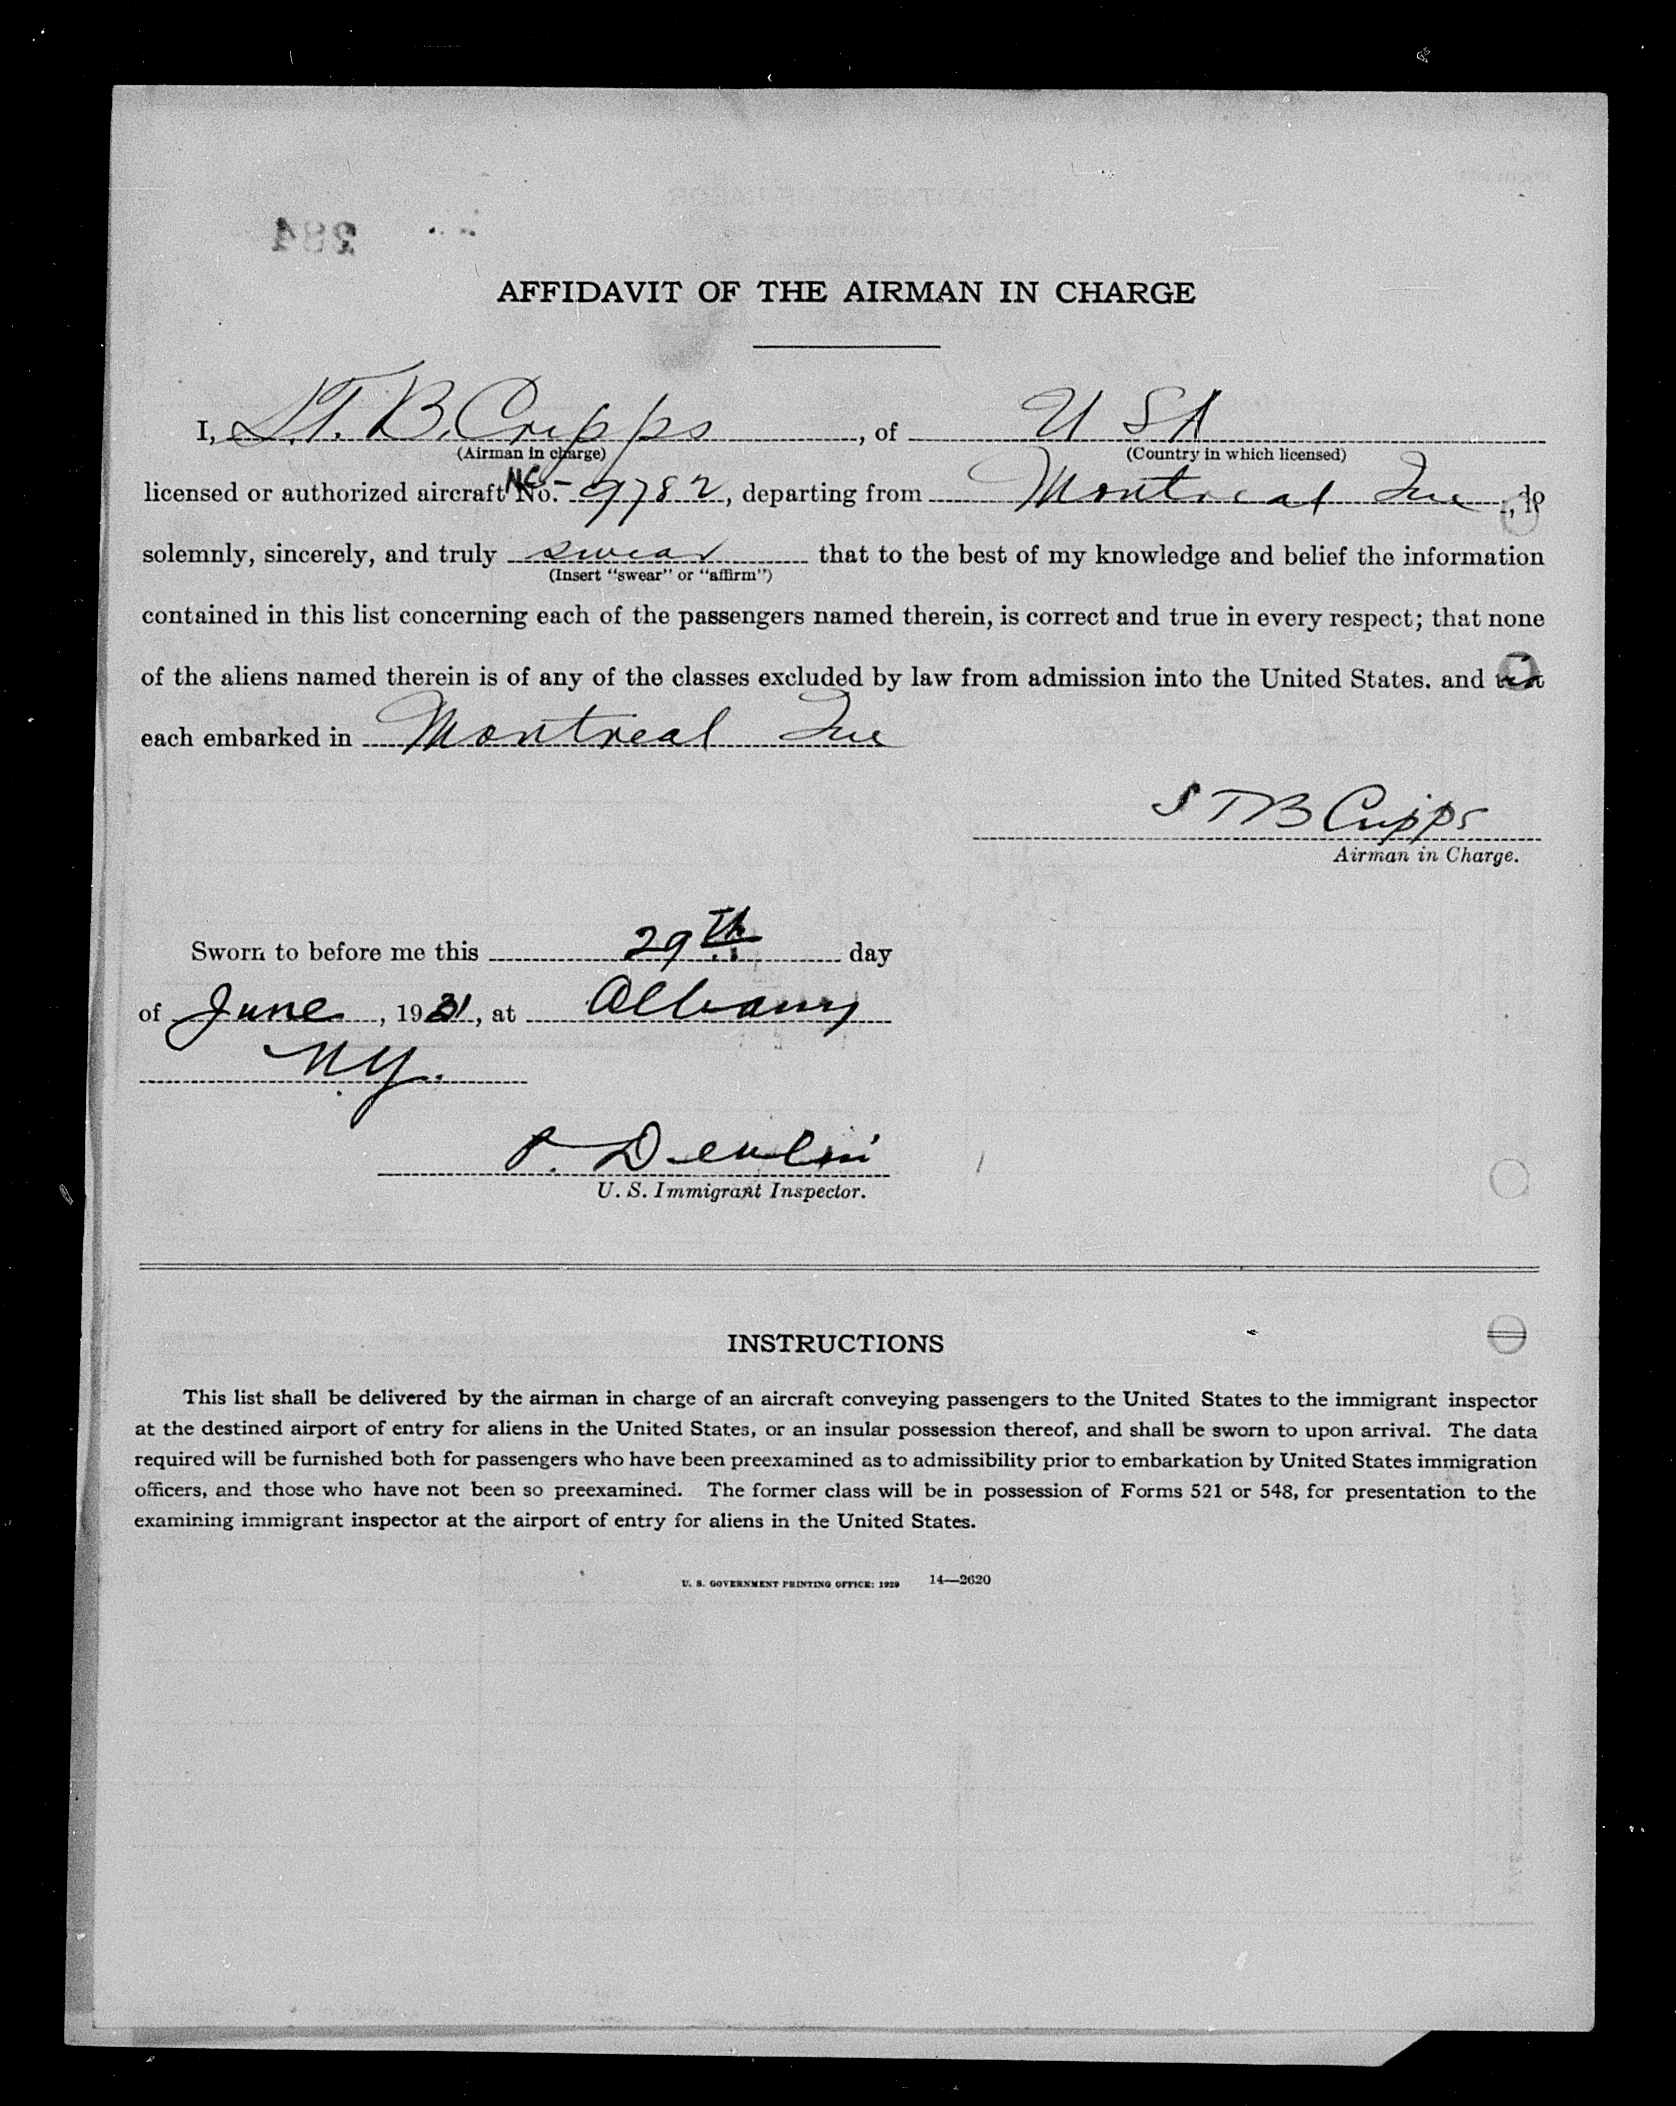 AFFIDAVIT OF THE AIRMAN IN CHARGE
I, S.T. B. Cripps, of U S A
(Airman in charge) (Country in which licensed)
licensed or authorized aircraft NC- No. 9782, departing from Montreal Que, do
solemnly, sincerely, and truly swear that to the best of my knowledge and belief the information
(Insert "swear" or "affirm")
contained in this list concerning each of the passengers named therein, is correct and true in every respect; that none
of the aliens named therein is of any of the classes excluded by law from admission into the United States. and
each embarked in Montreal Que
S T B Cripps
Airman in Charge.
Sworn to before me this 29th day
of June, 1931, at Albany
N.Y.
P. Devlin
U. S. Immigrant Inspector.
INSTRUCTIONS
This list shall be delivered by the airman in charge of an aircraft conveying passengers to the United States to the immigrant inspector
at the destined airport of entry for aliens in the United States, or an insular possession thereof, and shall be sworn to upon arrival. The data
required will be furnished both for passengers who have been preexamined as to admissibility prior to embarkation by United States immigration
officers, and those who have not been so preexamined. The former class will be in possession of Forms 521 or 548, for presentation to the
examining immigrant inspector at the airport of entry for aliens in the United States.
U. S. GOVERNMENT PRINTING OFFICE: 1929 14—2620